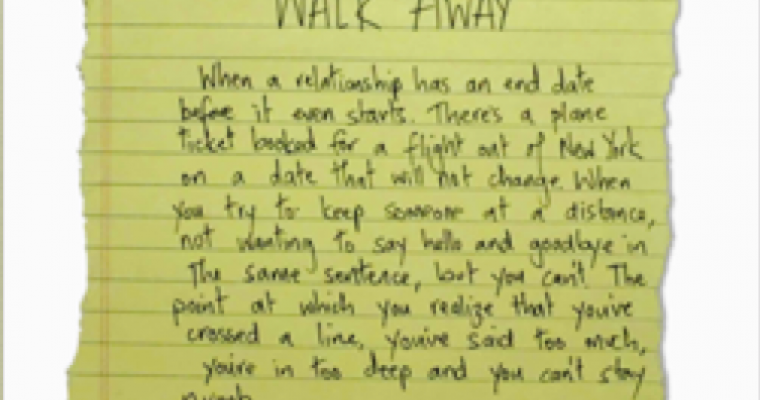 WALK AWAY
When a relationship has an end date
before it even starts. There's a plane
ticket booked for a flight out of New York
on a date that will not change. When
you try to keep someone at a distance,
not wanting to say hello and goodbye in
the same sentence, but you can't. The
point at which you realize that you've
crossed a line, you've said too much,
you're in too deep and you can't stay